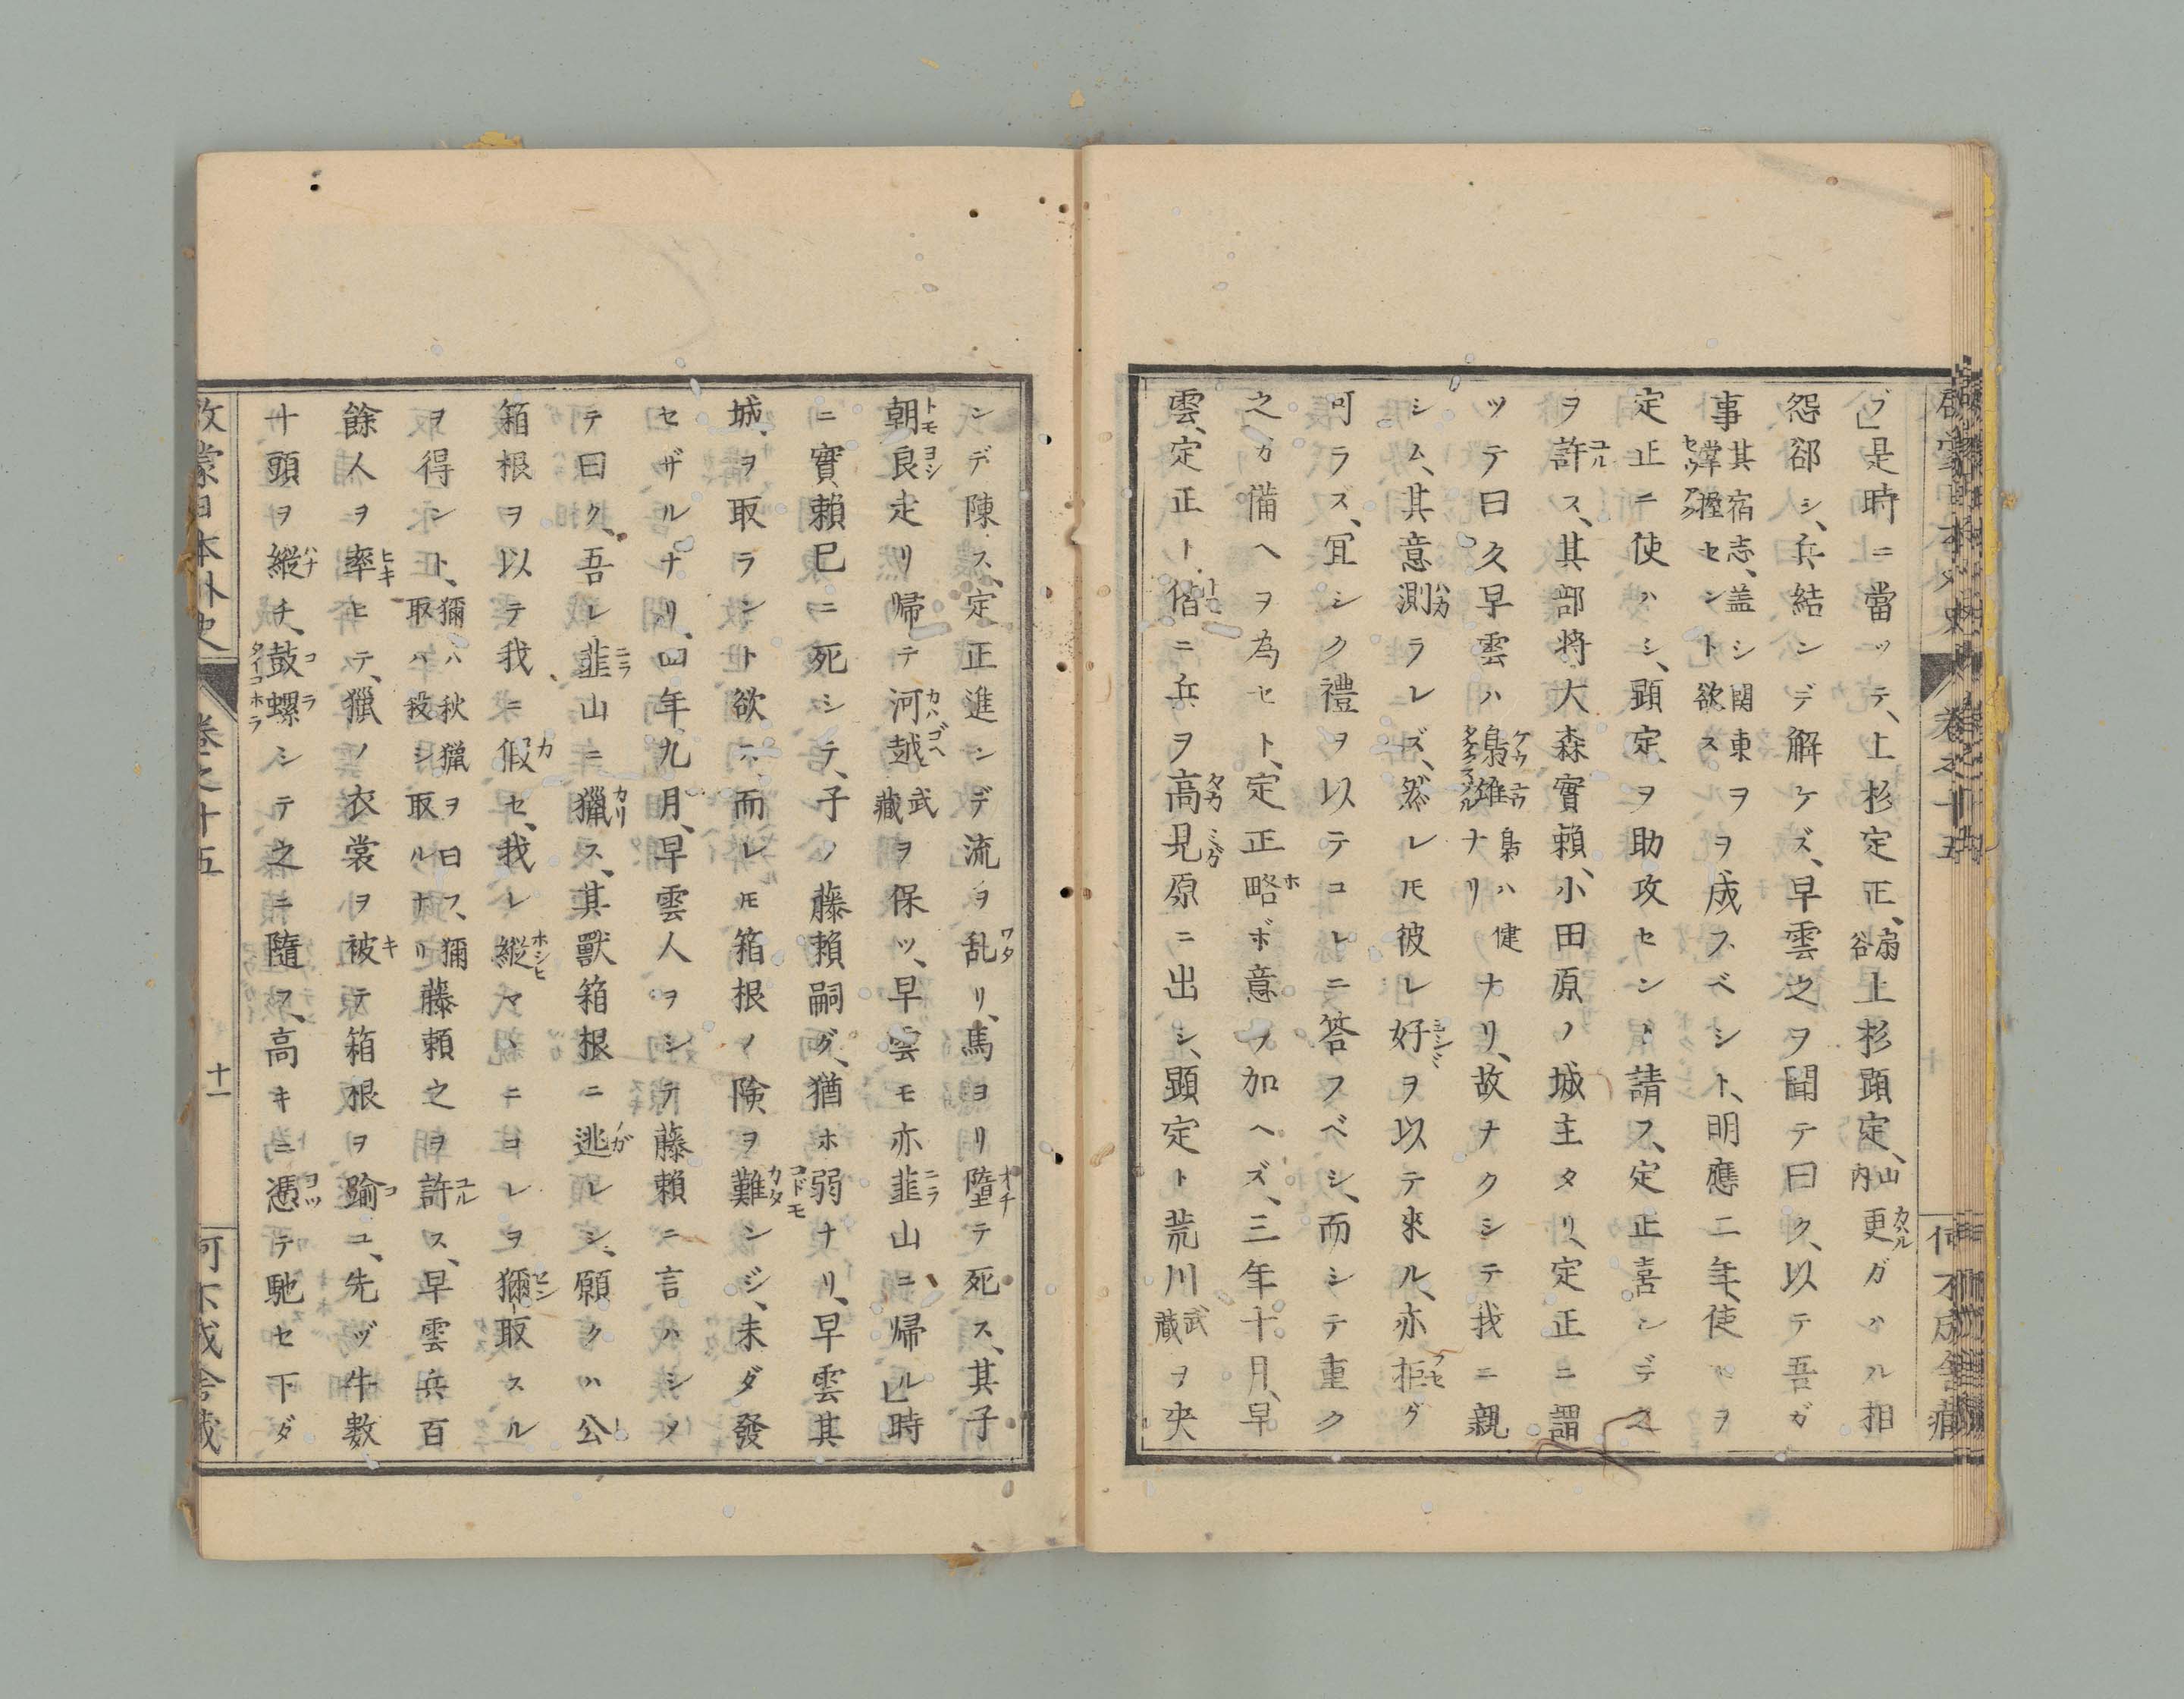 ブ」是時ニ當ッテ、上杉定正、扇谷上杉顕定、山内更ガハル相
怨郤シ、兵結ンデ解ケズ、早雲之ヲ聞テ曰ク、以テ吾ガ
事其宿志、盖シ関東ヲ掌握セント欲スヲ成スベシト、明應二年、使ヲ
定正ニ使ハシ、顕定ヲ助攻セント請フ、定正喜ンデ之
ヲ許ス、其部将大森實頼、小田原ノ城主タリ、定正ニ謂
ツテ曰ク早雲ハ梟雄ナリ梟ハ健ナリ、故ナクシテ我ニ親
シム、其意測ラレズ、然レ𪜈彼レ好ヲ以テ來ル、亦拒グ
可ラズ、冝シク禮ヲ以テコレニ答フベシ、而シテ重ク
之ガ備ヘヲ為セト、定正略ボ意ヲ加ヘズ、三年十月、早
雲、定正ト偕ニ兵ヲ高見原ニ出シ、顕定ト荒川武藏ヲ夾
ンデ陳ス、定正進ンデ流ヲ乱リ、馬ヨリ墮テ死ス、其子
朝良走リ帰テ河越武藏ヲ保ツ、早雲モ亦韮山ニ帰ル」時
ニ實頼已ニ死シテ、子ノ藤頼嗣グ、猶ホ弱ナリ、早雲其
城ヲ取ラント欲ス、而レ𪜈箱根ノ険ヲ難ンジ、未ダ發
セザルナリ、四年九月、早雲人ヲシテ藤頼ニ言ハシメ
テ曰ク、吾レ韮山ニ獵ス、其獸箱根ニ逃レシ、願クハ公
箱根ヲ以テ我ニ假セ、我レ縦マヽニコレヲ獮取スル
ヲ得ント、獮ハ秋獵ヲ曰フ、獮取ハ殺シ取ルナリ藤頼之ヲ許ス、早雲兵百
餘人ヲ率ヒテ、獵ノ衣裳ヲ被テ箱根ヲ踰ユ、先ヅ牛數
十頭ヲ縦チ、鼓螺シテ之ニ隨フ、高キニ憑テ馳セ下ダ
啓蒙日本外史 卷之十五 十一 何不成舎藏